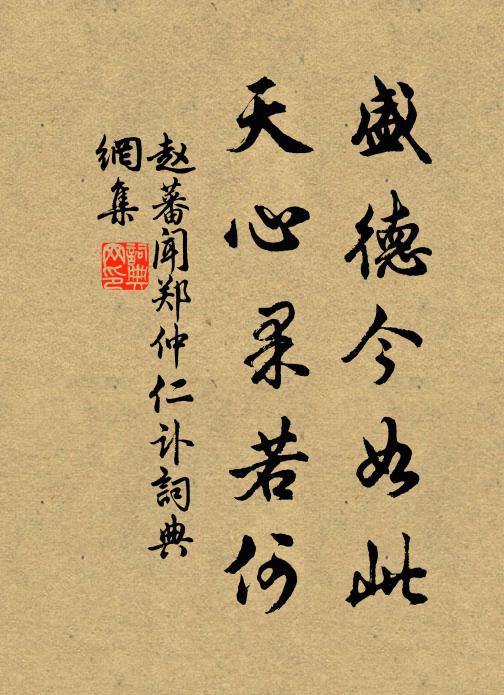 盛德今如此
天心果若何
赵蕃闻郑仲仁讣詞典
網集
詞典
网印